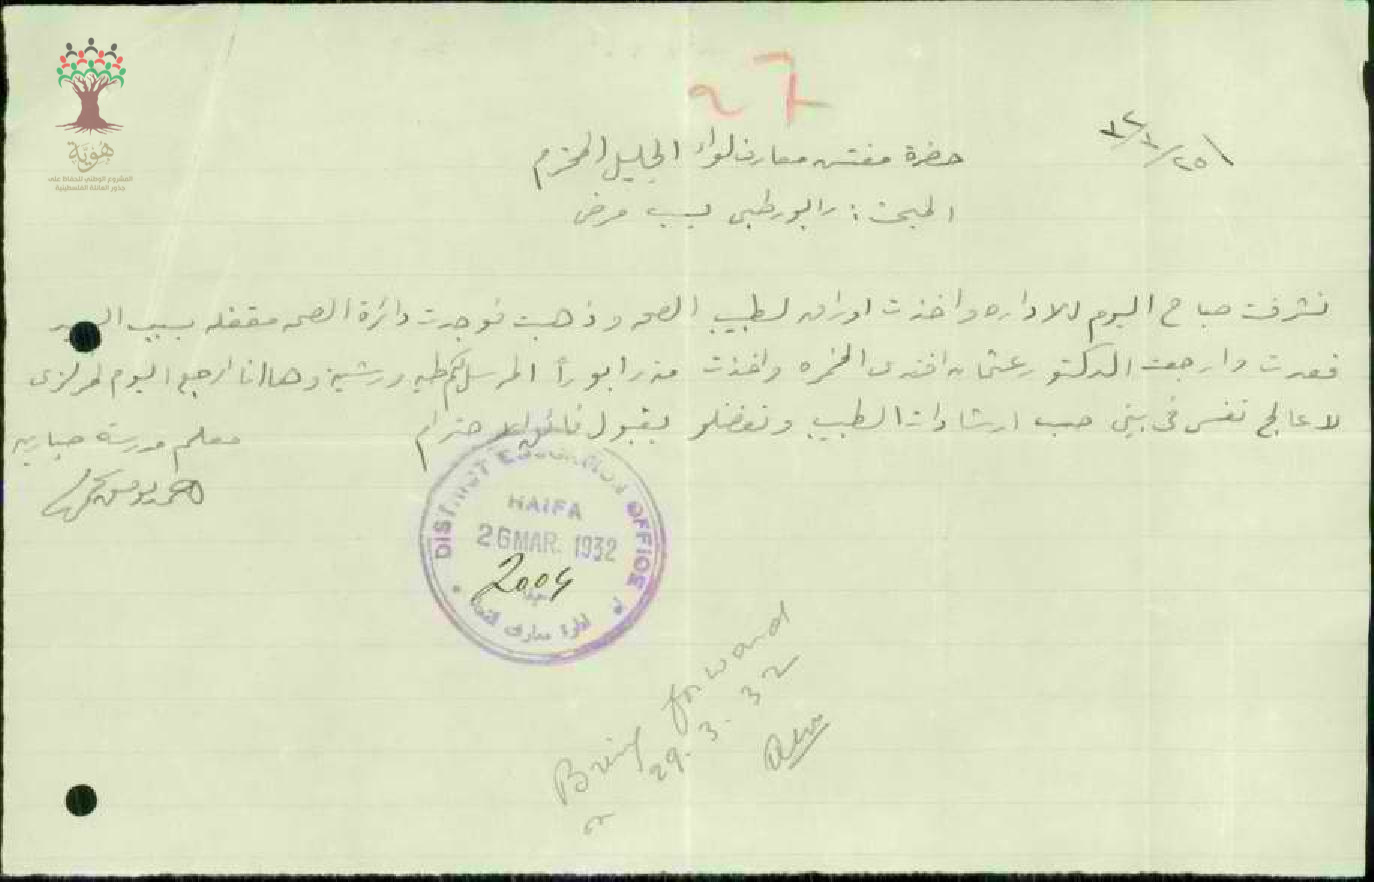 هَوِيَّة
المشروع الوطني للحفاظ على
جذور العائلة الفلسطينية
27
٢٥/٣/٣٢
حضرة مفتش معارف لواء الجليل المحترم
البحث: رابور طبي بسبب مرض
تشرفت صباح اليوم للاداره واخذت اوراق لطبيب الصحه وذهبت فوجدت دائرة الصحه مقفله بسبب العيد
فعدت وارجعت الدكتور عثمان افندي الخمره واخذت منه رابوراً المرسل لكم طيه ورشيته وها انا ارجع اليوم لمركزي
لاعالج نفسي في بيتي حسب ارشادات الطبيب وتفضلو بقبول فائق الاحترام
معلم مدرسة صبارين
DISTRICT EDUCATION OFFICE
HAIFA
26 MAR. 1932
2004
حيفا
ادارة معارف القضاء
Bring forward
29.3.32